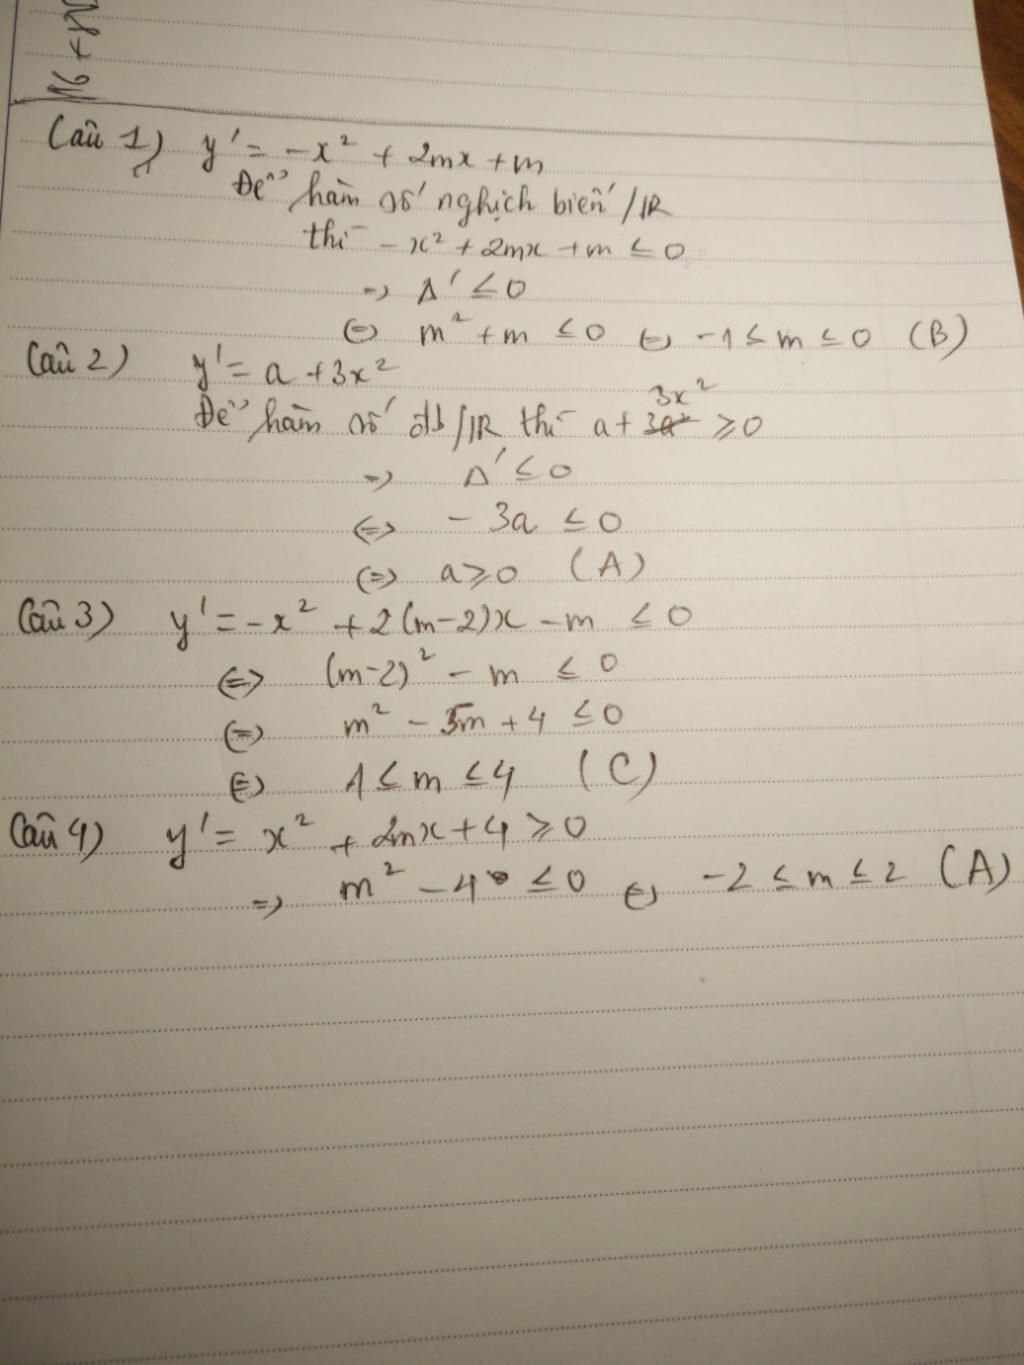 Câu 1) y' = -x² + 2mx + m
Để hàm số nghịch biến / IR
thì -x² + 2mx + m ≤ 0
=> Δ' ≤ 0
<=> m² + m ≤ 0 <=> -1 ≤ m ≤ 0 (B)
Câu 2) y' = a + 3x²
Để hàm số đb / IR thì a + 3x² ≥ 0
=> Δ' ≤ 0
<=> - 3a ≤ 0
<=> a ≥ 0 (A)
Câu 3) y' = -x² + 2(m-2)x - m ≤ 0
<=> (m-2)² - m ≤ 0
<=> m² - 5m + 4 ≤ 0
<=> 1 ≤ m ≤ 4 (C)
Câu 4) y' = x² + 2mx + 4 ≥ 0
=> m² - 4 ≤ 0 <=> -2 ≤ m ≤ 2 (A)